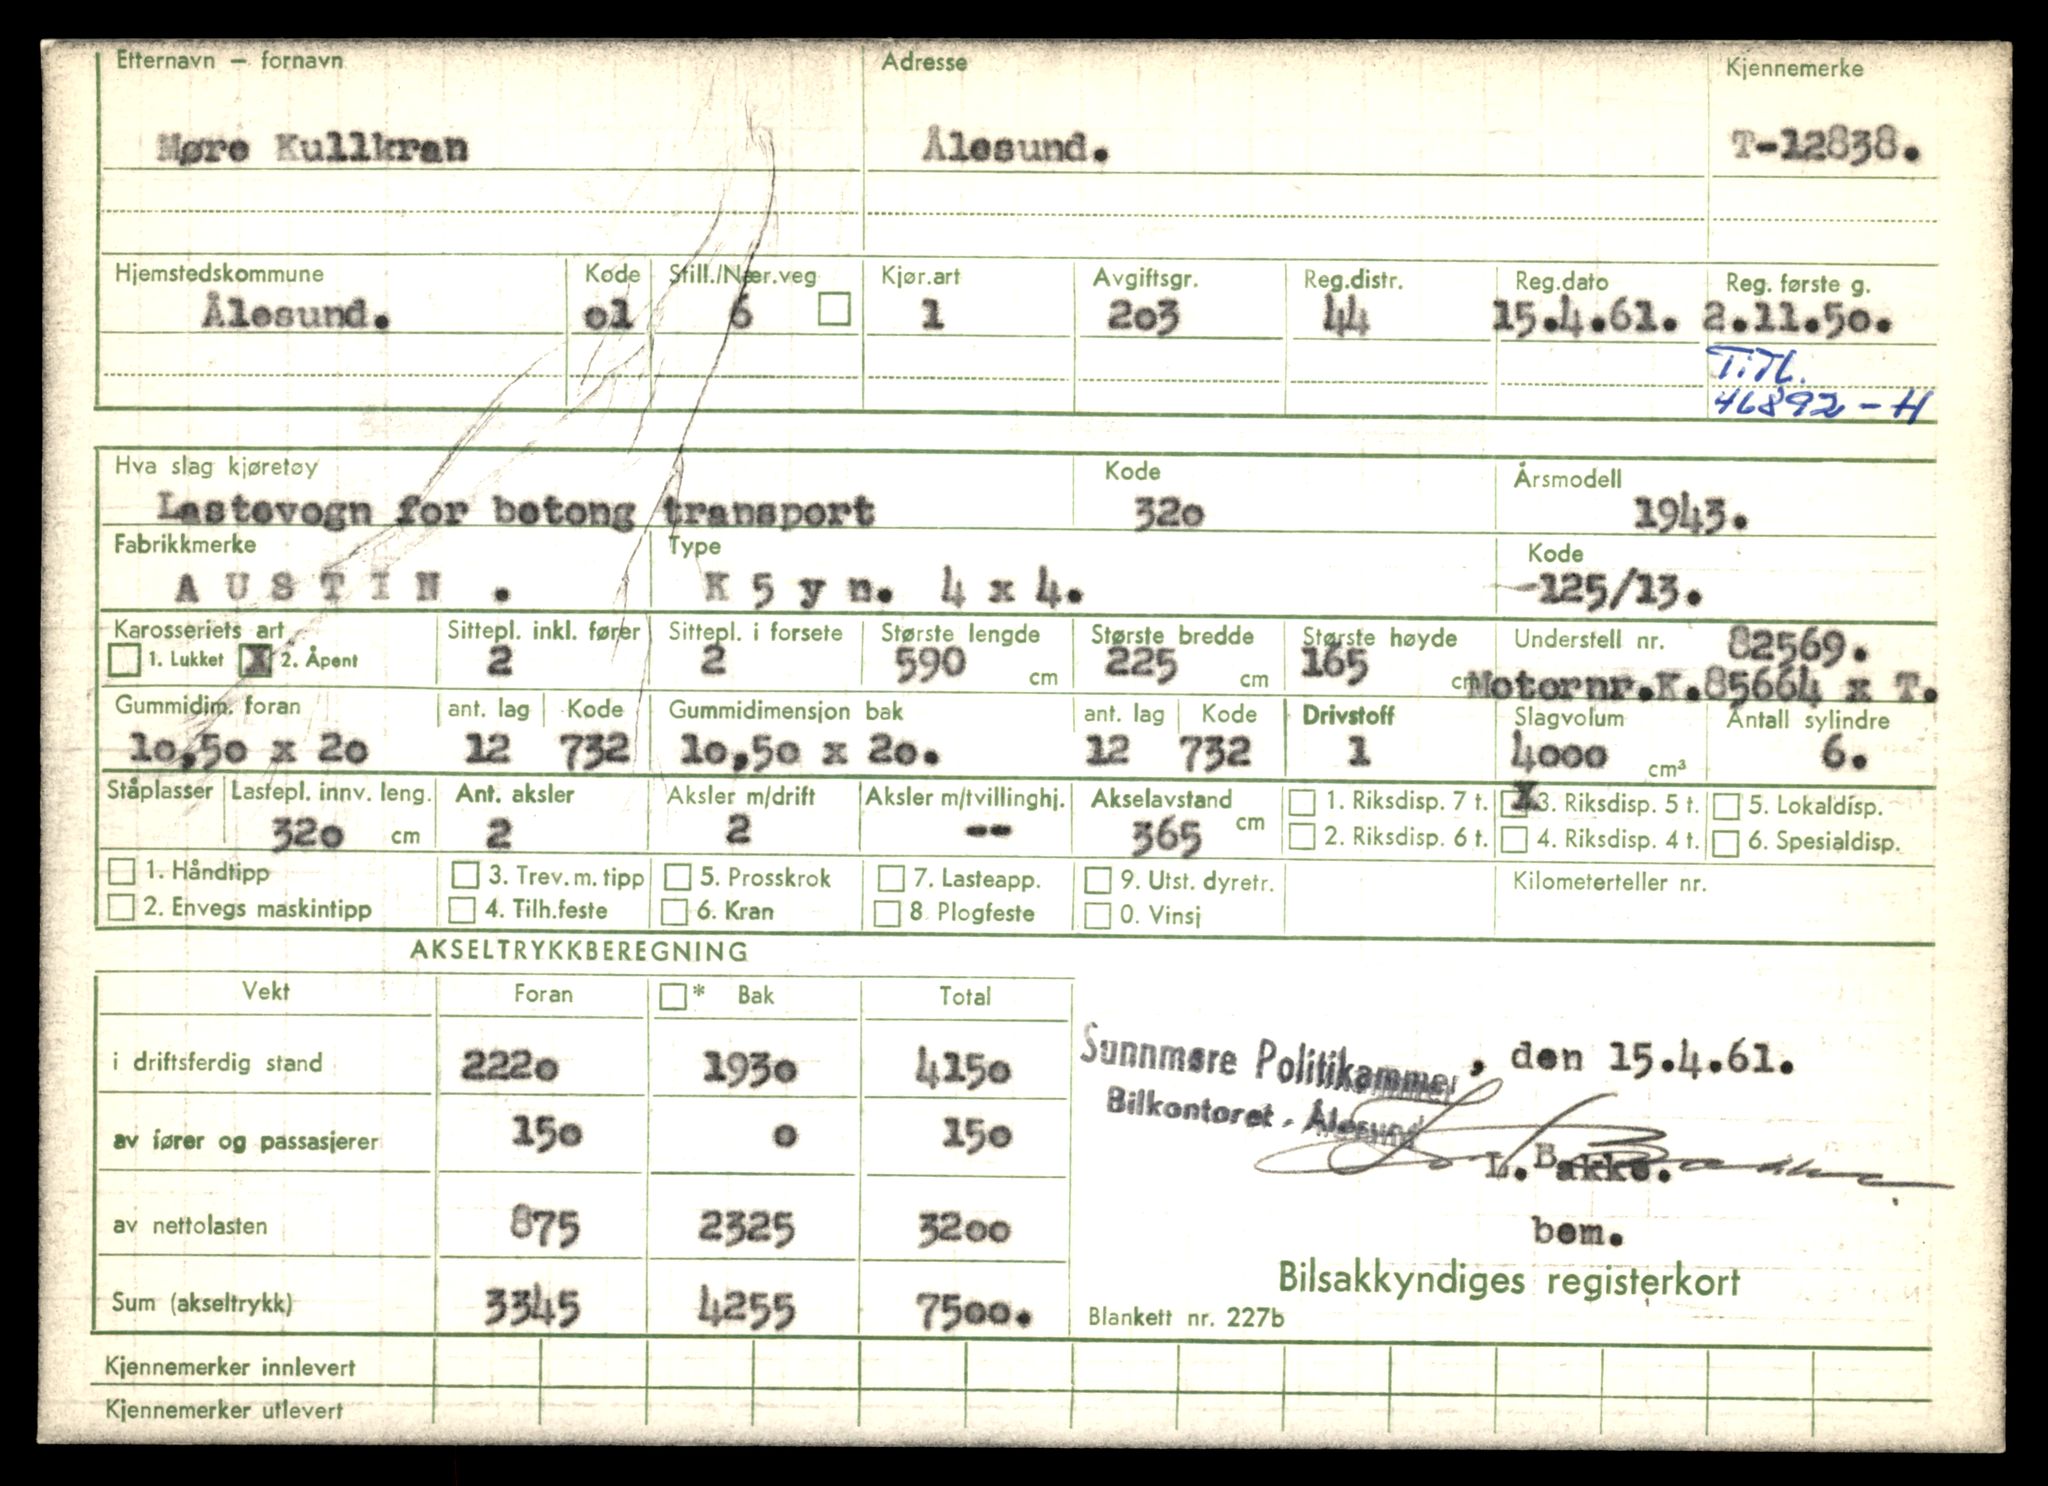 Etternavn — fornavn Adresse Kjennemerke
Møre Kullkran Ålesund. T-12838.
Hjemstedskommune Kode Still./Nær.veg Kjør.art Avgiftsgr. Reg.distr. Reg.dato Reg. første g.
Ålesund. o1 6 1 2o3 44 15.4.61. 2.11.5o.
T.Tl.
46892-H
Hva slag kjøretøy Kode Årsmodell
Lastevogn for betong transport 32o 1943.
Fabrikkmerke Type Kode
A U S T I N . K 5 y n. 4 x 4. -125/13.
Karosseriets art Sittepl. inkl. fører Sittepl. i forsete Største lengde Største bredde Største høyde Understell nr. 82569.
1. Lukket X 2. Åpent 2 2 590 cm 225 cm 165 cm Motornr.K.85664 x T.
Gummidim. foran ant. lag Kode Gummidimensjon bak ant. lag Kode Drivstoff Slagvolum Antall sylindre
1o,5o x 2o 12 732 1o,5o x 2o. 12 732 1 4ooo cm³ 6.
Ståplasser Lastepl. innv. leng. Ant. aksler Aksler m/drift Aksler m/tvillinghj. Akselavstand 1. Riksdisp. 7 t. X 3. Riksdisp. 5 t. 5. Lokaldisp.
32o cm 2 2 -- 365 cm 2. Riksdisp. 6 t. 4. Riksdisp. 4 t. 6. Spesialdisp.
1. Håndtipp 3. Trev. m. tipp 5. Prosskrok 7. Lasteapp. 9. Utst. dyretr. Kilometerteller nr.
2. Envegs maskintipp 4. Tilh.feste 6. Kran 8 Plogfeste 0. Vinsj
AKSELTRYKKBEREGNING
Vekt Foran * Bak Total
i driftsferdig stand 222o 193o 415o
Sunnmøre Politikammer, den 15.4.61.
Bilkontoret - Ålesund
av fører og passasjerer 15o o 15o
L. Bakke.
av nettolasten 875 2325 32oo
bem.
Bilsakkyndiges registerkort
Sum (akseltrykk) 3345 4255 75oo.
Blankett nr. 227b
Kjennemerker innlevert
Kjennemerker utlevert